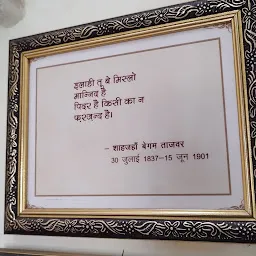 इलाही तू बे मिस्लो
मानिन्द है
पिदर है किसी का न
फ़रज़न्द है।
– शाहजहाँ बेगम ताजवर
30 जुलाई 1837–15 जून 1901